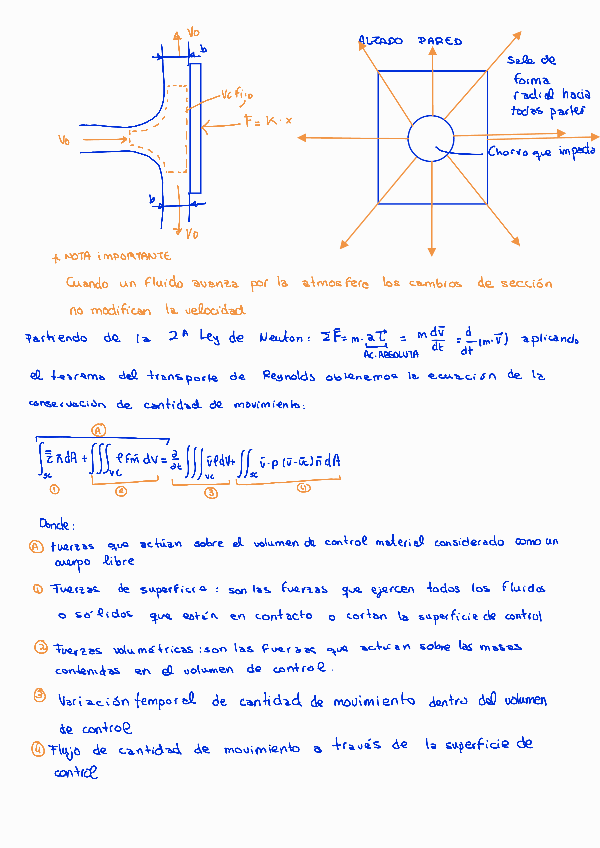 V0
b
ALZADO PARED
Sale de
forma
radial hacia
todas partes
Vc Fijo
F = K · x
V0
Chorro que impacta
b
V0
* NOTA IMPORTANTE
Cuando un fluido avanza por la atmosfera los cambios de sección
no modifican la velocidad
Partiendo de la 2ª Ley de Newton: ΣF̄ = m · a = m dv̄/dt = d/dt (m · v̄) aplicando
AC. ABSOLUTA
el teorema del transporte de Reynolds obtenemos la ecuación de la
conservación de cantidad de movimiento:
A
∫sc n̄ dA + ∭vc ρ fm dV = ∂/∂t ∭vc v̄ ρ dV + ∬sc v̄ · ρ (v̄ - v̄c) n̄ dA
1 2 3 4
Donde:
A Fuerzas que actúan sobre el volumen de control material considerado como un
cuerpo libre
1 Fuerzas de superficie: son las fuerzas que ejercen todos los fluidos
o sólidos que están en contacto o cortan la superficie de control
2 Fuerzas volumétricas: son las fuerzas que actúan sobre las masas
contenidas en el volumen de control.
3 Variación temporal de cantidad de movimiento dentro del volumen
de control
4 Flujo de cantidad de movimiento a través de la superficie de
control